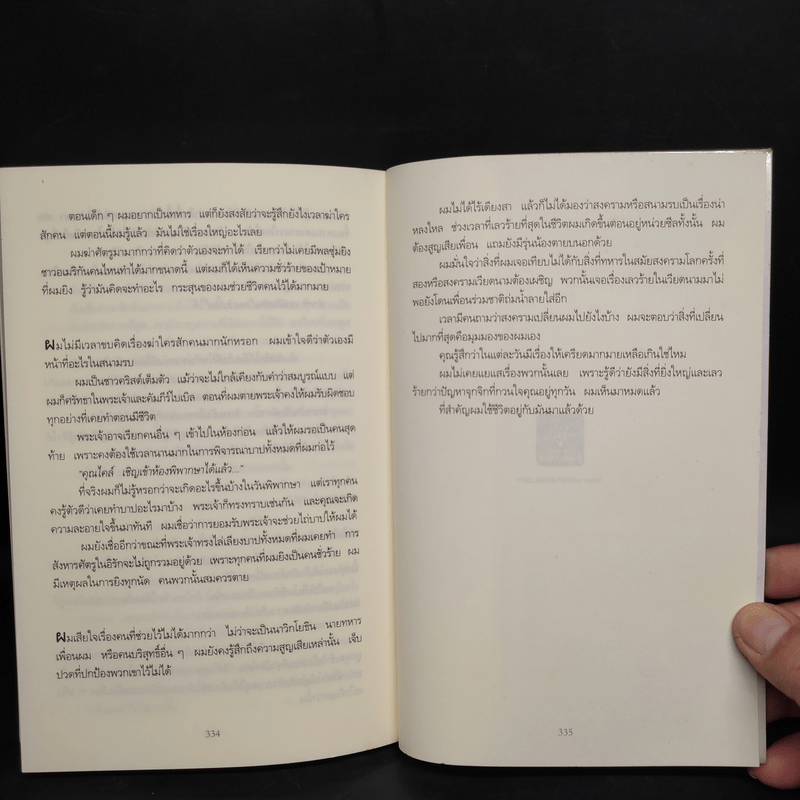 ตอนเด็ก ๆ ผมอยากเป็นทหาร แต่ก็ยังสงสัยว่าจะรู้สึกยังไงเวลาฆ่าใคร
สักคน แต่ตอนนี้ผมรู้แล้ว มันไม่ใช่เรื่องใหญ่อะไรเลย
ผมฆ่าศัตรูมามากกว่าที่คิดว่าตัวเองจะทำได้ เรียกว่าไม่เคยมีพลซุ่มยิง
ชาวอเมริกันคนไหนทำได้มากขนาดนี้ แต่ผมก็ได้เห็นความชั่วร้ายของเป้าหมาย
ที่ผมยิง รู้ว่ามันคิดจะทำอะไร กระสุนของผมช่วยชีวิตคนไว้ได้มากมาย
ผมไม่มีเวลาขบคิดเรื่องฆ่าใครสักคนมากนักหรอก ผมเข้าใจดีว่าตัวเองมี
หน้าที่อะไรในสนามรบ
ผมเป็นชาวคริสต์เต็มตัว แม้ว่าจะไม่ใกล้เคียงกับคำว่าสมบูรณ์แบบ แต่
ผมก็ศรัทธาในพระเจ้าและคัมภีร์ไบเบิล ตอนที่ผมตายพระเจ้าคงให้ผมรับผิดชอบ
ทุกอย่างที่เคยทำตอนมีชีวิต
พระเจ้าอาจเรียกคนอื่น ๆ เข้าไปในห้องก่อน แล้วให้ผมรอเป็นคนสุด
ท้าย เพราะคงต้องใช้เวลานานมากในการพิจารณาบาปทั้งหมดที่ผมก่อไว้
"คุณไคล์ เชิญเข้าห้องพิพากษาได้แล้ว..."
ที่จริงผมก็ไม่รู้หรอกว่าจะเกิดอะไรขึ้นบ้างในวันพิพากษา แต่เราทุกคน
คงรู้ตัวดีว่าเคยทำบาปอะไรมาบ้าง พระเจ้าก็ทรงทราบเช่นกัน และคุณจะเกิด
ความละอายใจขึ้นมาทันที ผมเชื่อว่าการยอมรับพระเจ้าจะช่วยไถ่บาปให้ผมได้
ผมยังเชื่ออีกว่าขณะที่พระเจ้าทรงไล่เลียงบาปทั้งหมดที่ผมเคยทำ การ
สังหารศัตรูในอิรักจะไม่ถูกรวมอยู่ด้วย เพราะทุกคนที่ผมยิงเป็นคนชั่วร้าย ผม
มีเหตุผลในการยิงทุกนัด คนพวกนั้นสมควรตาย
ผมเสียใจเรื่องคนที่ช่วยไว้ไม่ได้มากกว่า ไม่ว่าจะเป็นนาวิกโยธิน นายทหาร
เพื่อนผม หรือคนบริสุทธิ์อื่น ๆ ผมยังคงรู้สึกถึงความสูญเสียเหล่านั้น เจ็บ
ปวดที่ปกป้องพวกเขาไว้ไม่ได้
334
ผมไม่ได้ไร้เดียงสา แล้วก็ไม่ได้มองว่าสงครามหรือสนามรบเป็นเรื่องน่า
หลงใหล ช่วงเวลาที่เลวร้ายที่สุดในชีวิตผมเกิดขึ้นตอนอยู่หน่วยซีลทั้งนั้น ผม
ต้องสูญเสียเพื่อน แถมยังมีรุ่นน้องตายบนอกด้วย
ผมมั่นใจว่าสิ่งที่ผมเจอเทียบไม่ได้กับสิ่งที่ทหารในสมัยสงครามโลกครั้งที่
สองหรือสงครามเวียดนามต้องเผชิญ พวกนั้นเจอเรื่องเลวร้ายในเวียดนามมาไม่
พอยังโดนเพื่อนร่วมชาติถ่มน้ำลายใส่อีก
เวลามีคนถามว่าสงครามเปลี่ยนผมไปยังไงบ้าง ผมจะตอบว่าสิ่งที่เปลี่ยน
ไปมากที่สุดคือมุมมองของผมเอง
คุณรู้สึกว่าในแต่ละวันมีเรื่องให้เครียดมากมายเหลือเกินใช่ไหม
ผมไม่เคยแยแสเรื่องพวกนั้นเลย เพราะรู้ดีว่ายังมีสิ่งที่ยิ่งใหญ่และเลว
ร้ายกว่าปัญหาจุกจิกที่กวนใจคุณอยู่ทุกวัน ผมเห็นมาหมดแล้ว
ที่สำคัญผมใช้ชีวิตอยู่กับมันมาแล้วด้วย
335